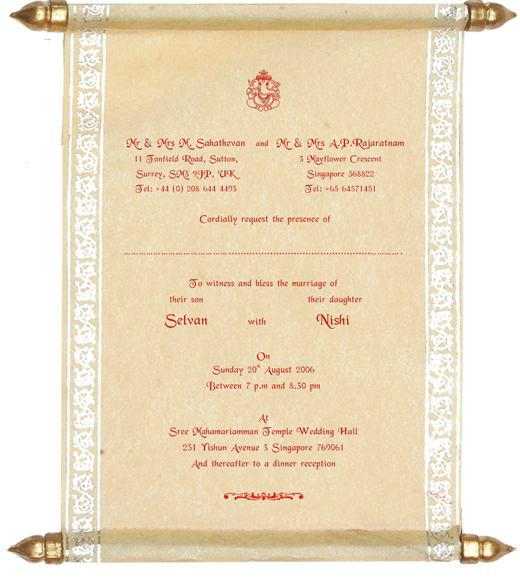 Mr & Mrs M. Sahathevan and Mr & Mrs A.P.Rajaratnam
11 Tonfield Road, Sutton, 3 Mayflower Crescent
Surrey, SM3 9JP, UK Singapore 568822
Tel: +44 (0) 208 644 4493 Tel: +65 64571451
Cordially request the presence of
To witness and bless the marriage of
their son their daughter
Selvan with Nishi
On
Sunday 20th August 2006
Between 7 p.m and 8.30 pm
At
Sree Mahamariamman Temple Wedding Hall
251 Yishun Avenue 3 Singapore 769061
And thereafter to a dinner reception